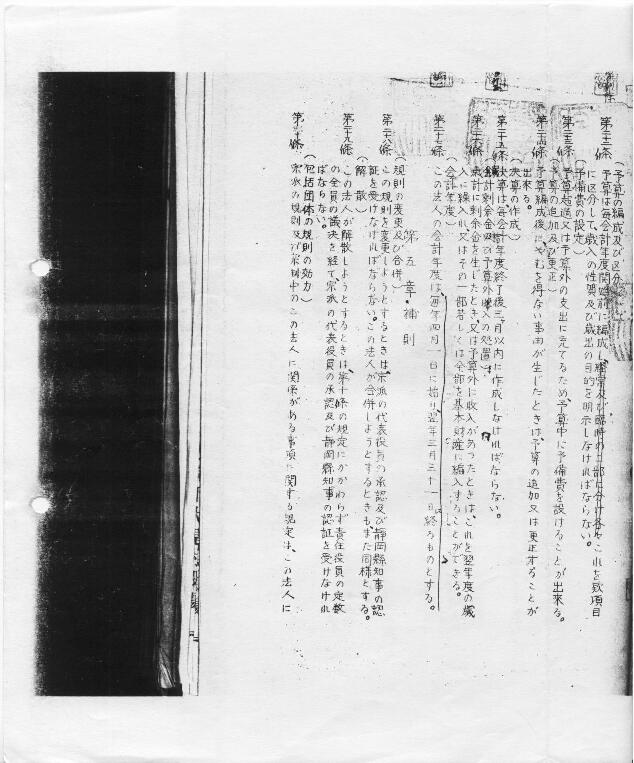 (予算の編成及び区分)
第二十二条 予算は毎会計年度開始前に編成し経常及び臨時の二部に分け各々これを款項目
に区分して、歳入の性質及び歳出の目的を明示しなければならない。
(予備費の設定)
第二十三条 予算超過又は予算外の支出に充てるため、予算中に予備費を設けることが出来る。
(予算の追加及び更正)
第二十四条 予算編成後にやむを得ない事由が生じたときは、予算の追加又は更正することが
出来る。
(決算の作成)
第二十五条 決算は毎会計年度終了後三月以内に作成しなければならない。
(歳計剰余金及び予算外收入の処置)
第二十六条 歳計に剰余金を生じたとき、又は予算外に收入があつたときは、これを翌年度の歳
入に繰入れ又はその一部若しくは全部を基本財産に編入することができる。
(会計年度)
第二十七条 この法人の会計年度は、毎年四月一日に始り、翌年三月三十一日に終るものとする。
第五章 補則
(規則の変更及び合併)
第二十八条 この規則を変更しようとするときは、宗派の代表役員の承認及び静岡縣知事の認
証を受けなければならない。この法人が合併しようとするときもまた同様とする。
(解散)
第二十九条 この法人が解散しようとするときは、第十條の規定にかかわらず責任役員の定数
の全員の議決を経て宗派の代表役員の承認及び静岡縣知事の認証を受けなけれ
ばならない。
(包括団体の規則の効力)
第三十條 宗派の規則及び宗制中のこの法人に関係がある事項に関する規定は、この法人に